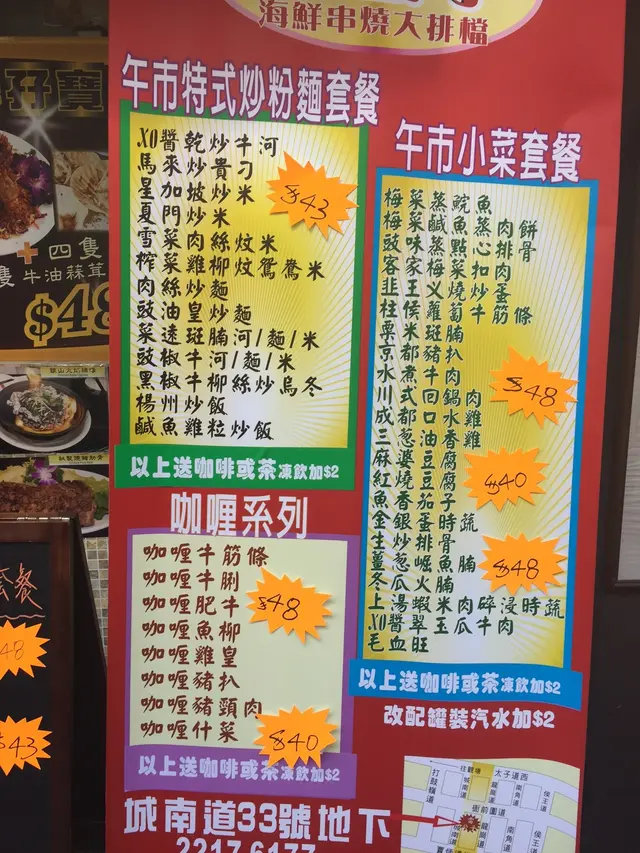 海鮮串燒大排檔
午市特式炒粉麵套餐
XO醬乾炒牛河
馬來炒貴刁
星加坡炒米
夏門炒米
雪菜肉絲炆米
榨菜雞柳炆鴛鴦米
肉絲炒麵
豉油皇炒麵
菜遠斑腩河/麵/米
豉椒牛河/麵/米
黑椒牛柳絲炒烏冬
楊州炒飯
鹹魚雞粒炒飯
$43
以上送咖啡或茶凍飲加$2
咖喱系列
咖喱牛筋條
咖喱牛脷
咖喱肥牛
咖喱魚柳
咖喱雞皇
咖喱豬扒
咖喱豬頸肉
咖喱什菜
$48
$40
以上送咖啡或茶凍飲加$2
午市小菜套餐
梅菜蒸鯇魚
梅菜鹹魚蒸肉餅
豉味魚點心排骨
客家梅菜扣肉
韭王蒸燒炒蛋
柱侯蘿蔔牛筋條
粟米斑腩
京都豬扒
水煮牛肉
川式回鍋肉
成都口水雞
三葱油香雞
麻婆豆腐
紅燒豆腐
魚香茄子
金銀蛋時蔬
生炒排骨
薑葱崛魚腩
冬瓜火腩
上湯蝦米肉碎浸時蔬
XO醬翠玉瓜牛肉
毛血旺
$48
$40
$48
以上送咖啡或茶凍飲加$2
改配罐裝汽水加$2
城南道33號地下
2217 6177
往觀塘
太子道西
打鼓嶺道
城南道
龍崗道
南角道
侯王道
衙前圍道
龍崗道
南角道
侯王道
孖寶
+四隻
隻牛油蒜茸
$48
套餐
48
$43